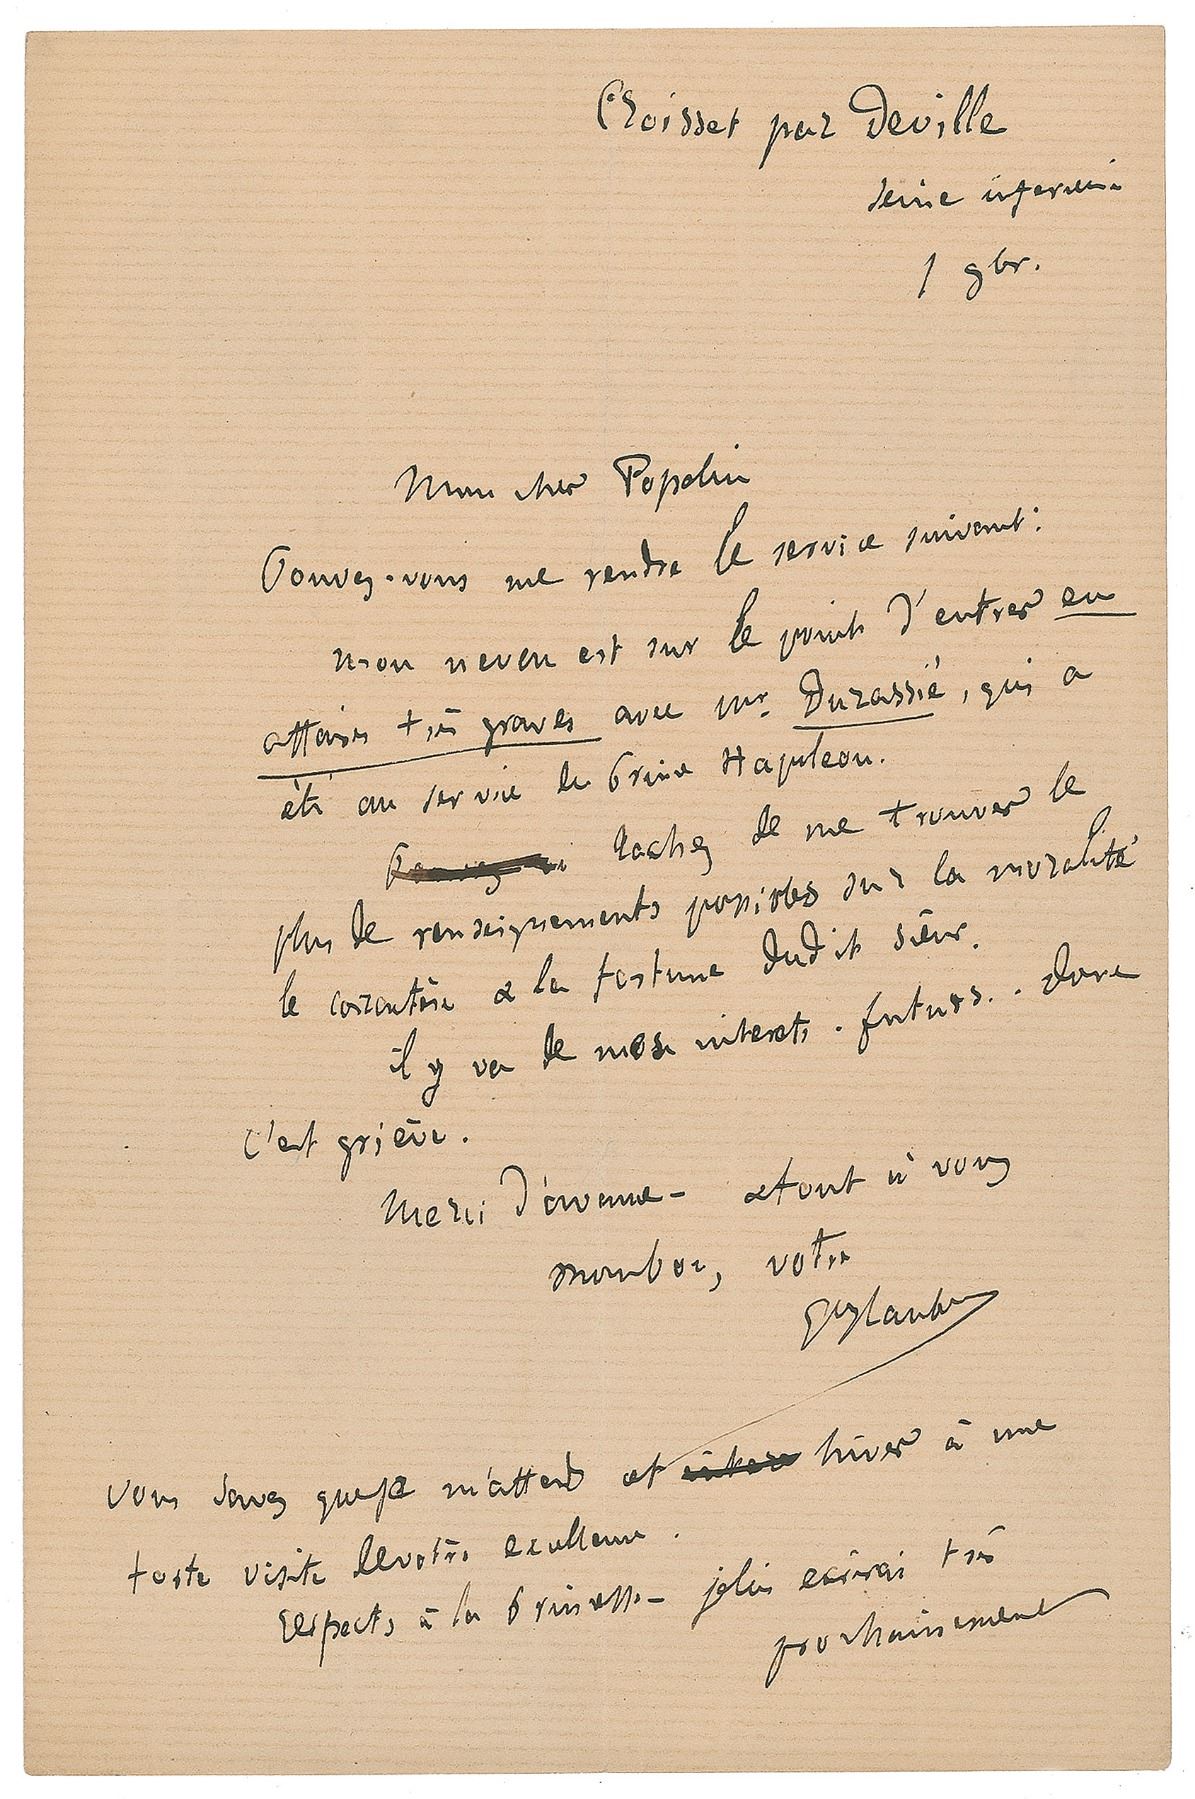 Croisset par Deville
Seine inférieure
1 9br.
Mon cher Popelin
Pouvez-vous me rendre le service suivant:
mon neveu est sur le point d'entrer en
affaires très graves avec mr. Durassié, qui a
été au service du Prince Napoleon.
Tachez de me trouver le
plus de renseignements possibles sur la moralité
le caractère & la fortune dudit sieur.
il y va de mes interets. futurs.. Donc
c'est griève.
Merci d'avance - & tout à vous
mon bon, votre
GveFlaubert
Vous savez que je m'attends cet hiver à une
forte visite de votre excellence.
respects à la Princesse - je lui écrirai très
prochainement